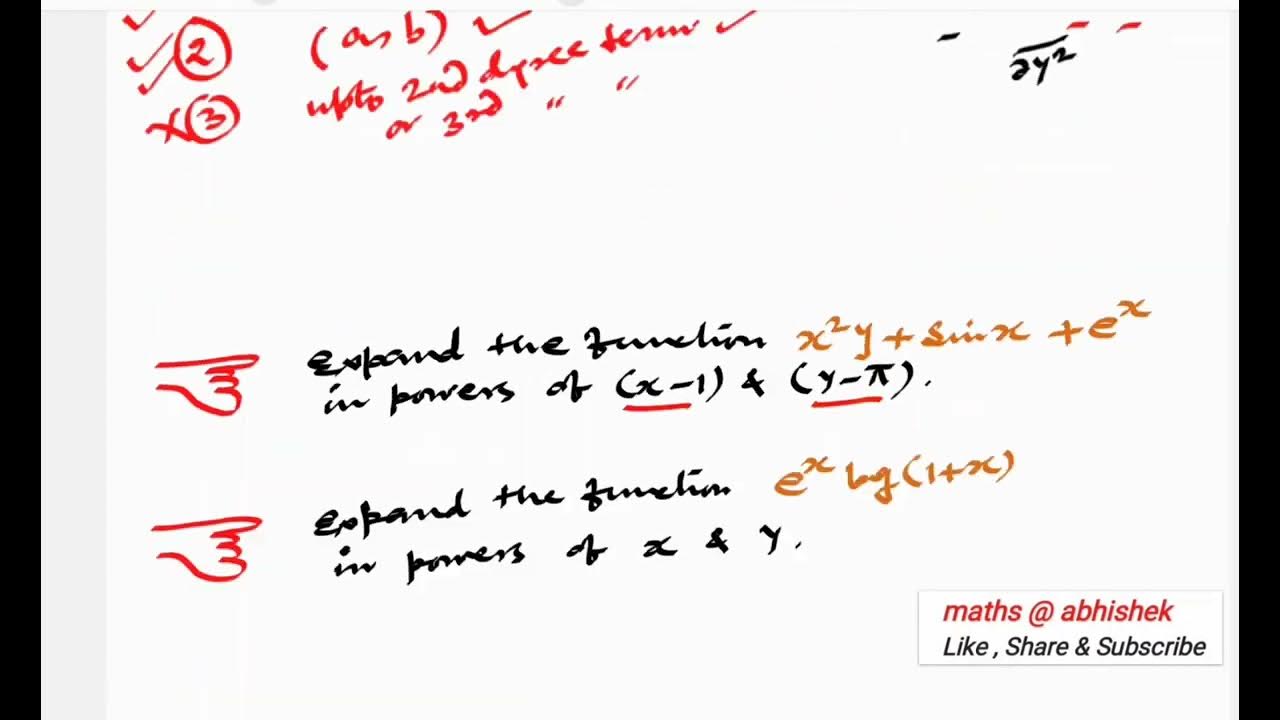 ② (a, b)
upto 2nd degree term
③ or 3rd " "
∂y²
Expand the function x²y + sinx + e^x
in powers of (x-1) & (y-π).
Expand the function e^x log(1+x)
in powers of x & y.
maths @ abhishek
Like , Share & Subscribe